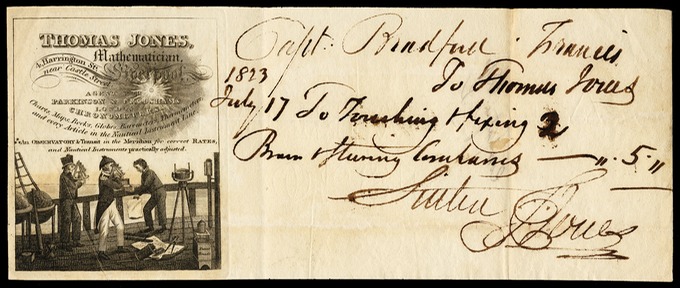 THOMAS JONES,
Mathematician,
4, Harrington St.
near Castle Street
Liverpool.
AGENT
PARKINSON & FRODSHAM'S
CHRONOMETERS
Charts, Maps, Books, Globes, Barometers, Thermometers,
and every Article in the Nautical Instrument Line.
An OBSERVATORY & Transit in the Meridian for correct RATES,
and Nautical Instruments practically adjusted.
Capt: Bradford Francis
1823 To Thomas Jones
July 17 To Touching & fixing 2
Steering Compasses — „ 5 „
Jones